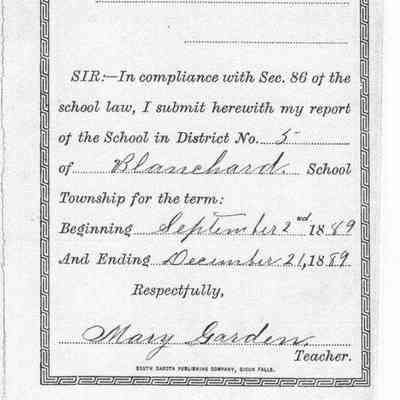 SIR:—In compliance with Sec. 86 of the
school law, I submit herewith my report
of the School in District No. 5
of Blanchard. School
Township for the term:
Beginning September 2nd 1889
And Ending December 21, 1889
Respectfully,
Mary Garden.
Teacher.
SOUTH DAKOTA PUBLISHING COMPANY, SIOUX FALLS.